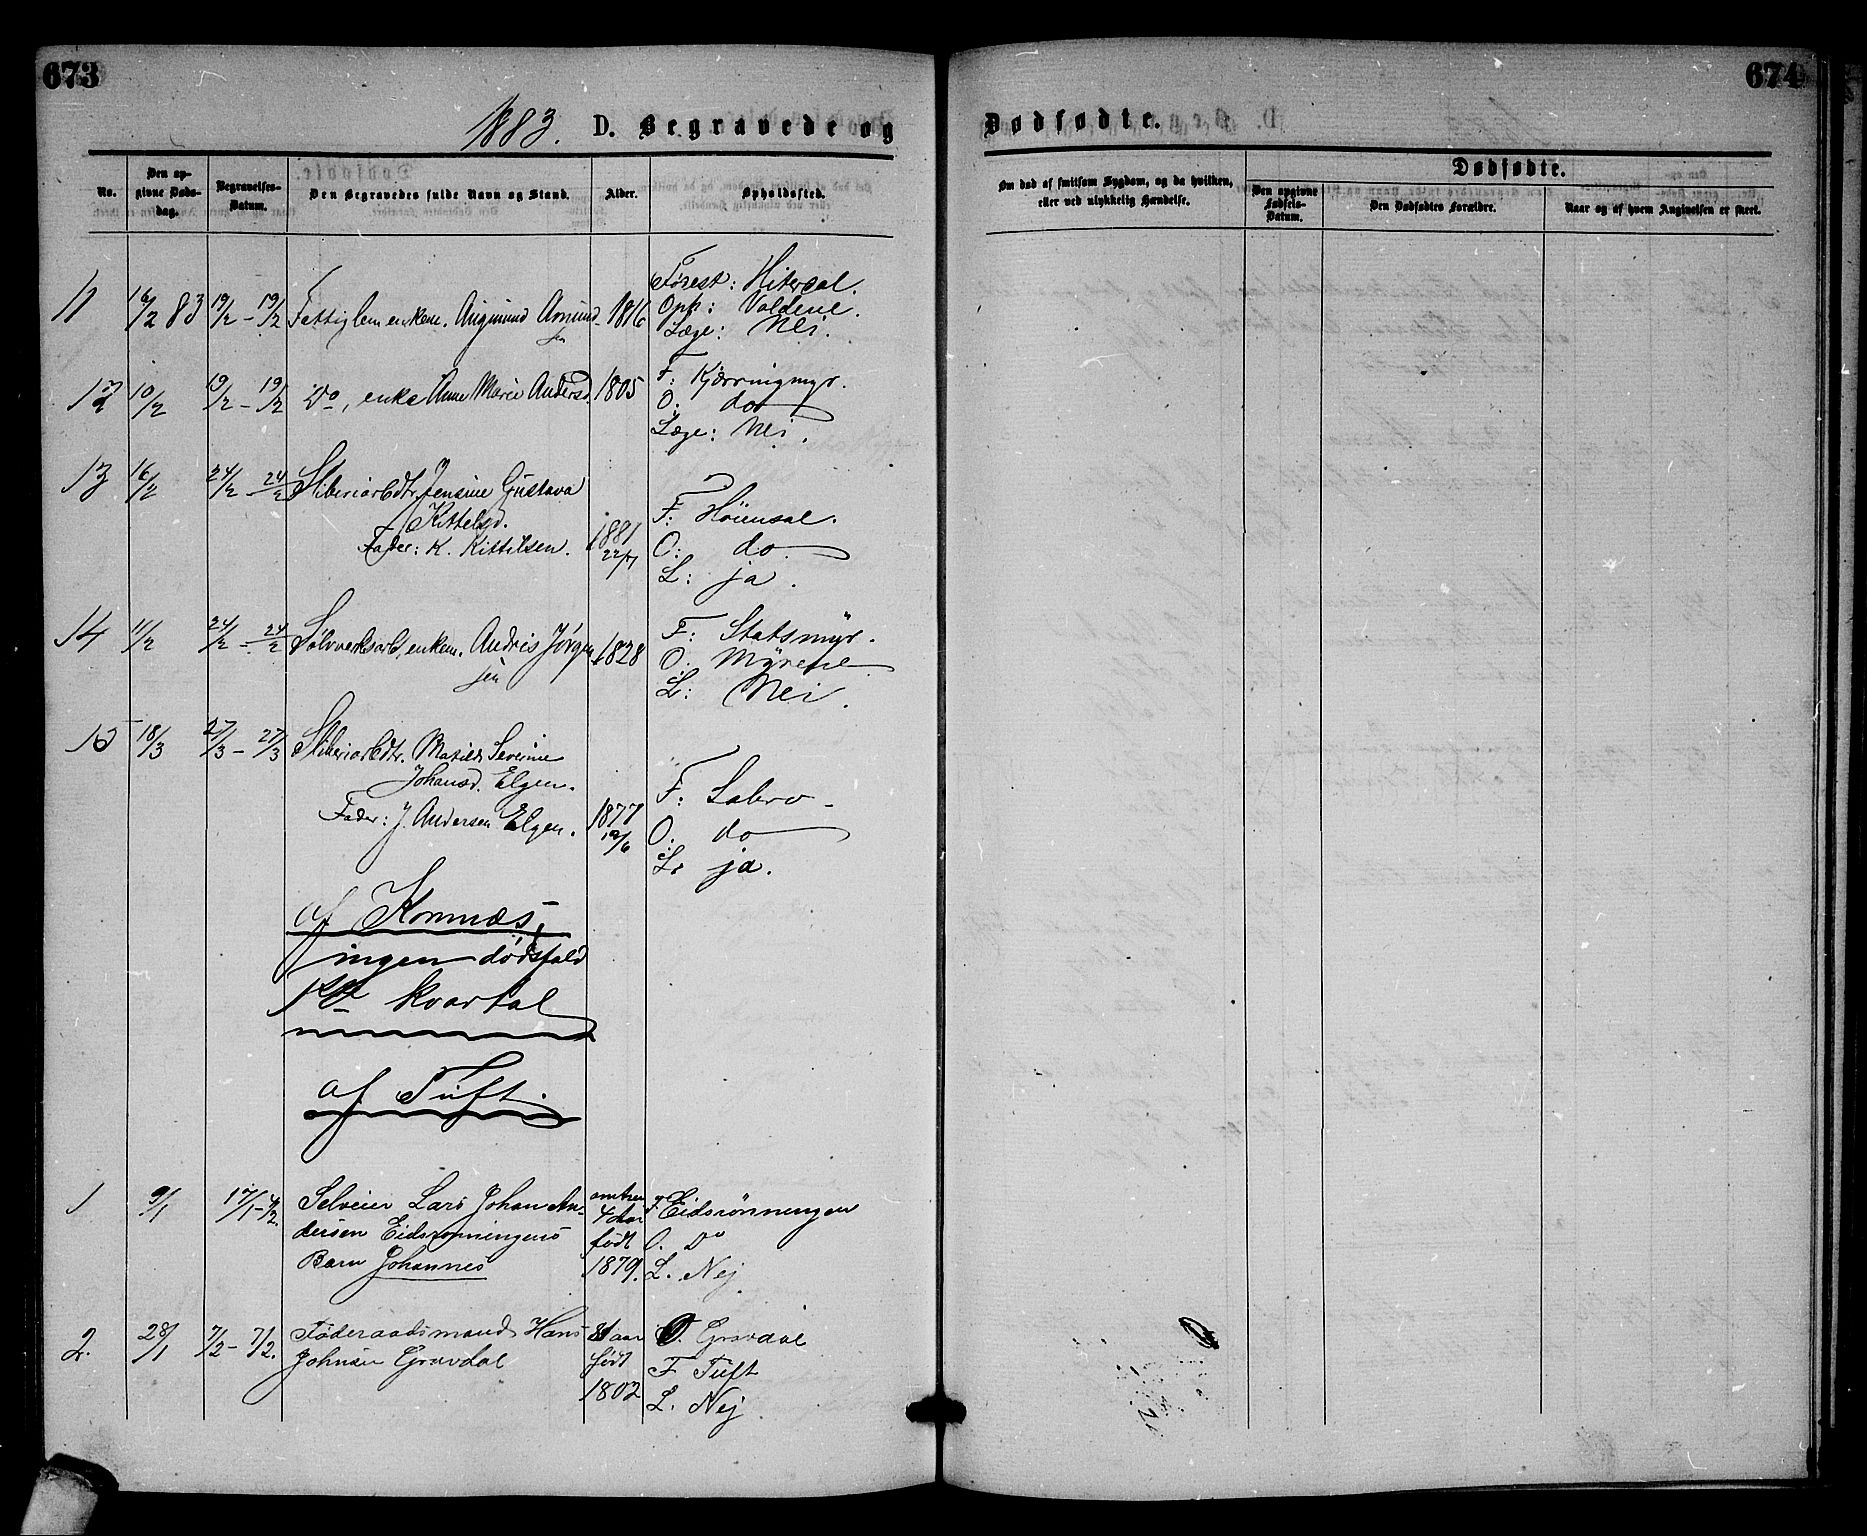 673
674
1883. D. Begravede og
Dødfødte.
No.
Den op-
givne Døds-
dag.
Begravelses-
Datum.
Den Begravedes fulde Navn og Stand.
Alder.
Opholdssted.
Om død af smitsom Sygdom, og da hvilken,
eller ved ulykkelig Hændelse.
Dødfødte.
Den opgivne
Fødsels-
Datum.
Den Dødfødtes Forældre.
Naar og af hvem Angivelsen er skeet.
11 16/2 83 19/2 - 19/2 Fattiglem enkem. Amund 1816
sen
Førest: Hiterdal.
Oph:
Læge: Nei.
12 10/2 19/2 - 19/2 Do, enke Anne Marie Andersd. 1805
F: Kjærringmyr.
O. do
Læge: Nei.
13 16/2 24/2 - 24/2 Sliberiarbdtr. Jensine Gustava
Kittelsd.
Fader: K. Kittilsen. 1881
22/7
F: Hoiensal.
O: do.
L: ja.
14 11/2 24/2 - 24/2 Sølvverksarb., enkem. Andris Jörgen 1828
sen
F: Statsmyr.
O. Myrene
L: Nei.
15 18/3 27/3 - 27/3 Sliberiarbdtr. Matilde Severine
Johansd. Elgen.
Fader: J. Andersen Elgen. 1877
19/6
F: Labro
O. do
L. ja.
af Komnæs,
ingen dödsfald
1ste kvartal
af Tuft.
1 9/1 17/1 - 4/2. Selveier Lars Johan An-
dersen Eidsrønningens
Barn Johannes
omtren
4 Aar
født
1879.
F Eidsrönningen
O. Do
L. Nej
2. 28/1 7/2 - 7/2. Føderaadsmand Hans
Johnsen Gravdal
81 aar
født
1802
O. Gravdal
F Tuft
L. Nej